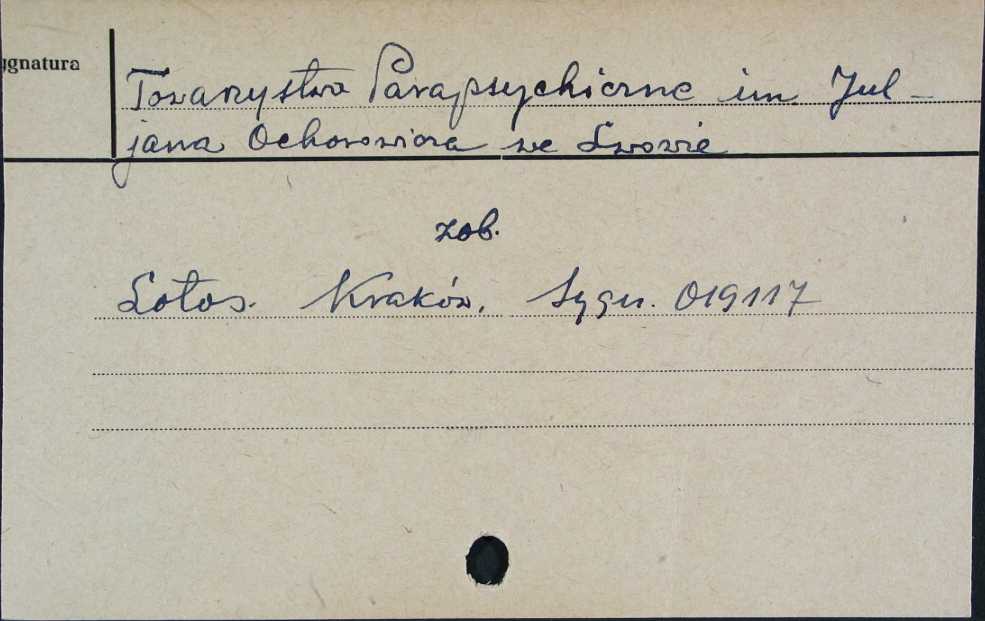 ygnatura
Towarzystwo Parapsychiczne im Jul-
jana Ochorowicza we Lwowie
zob.
Lotos. Kraków. Sygn. 019117